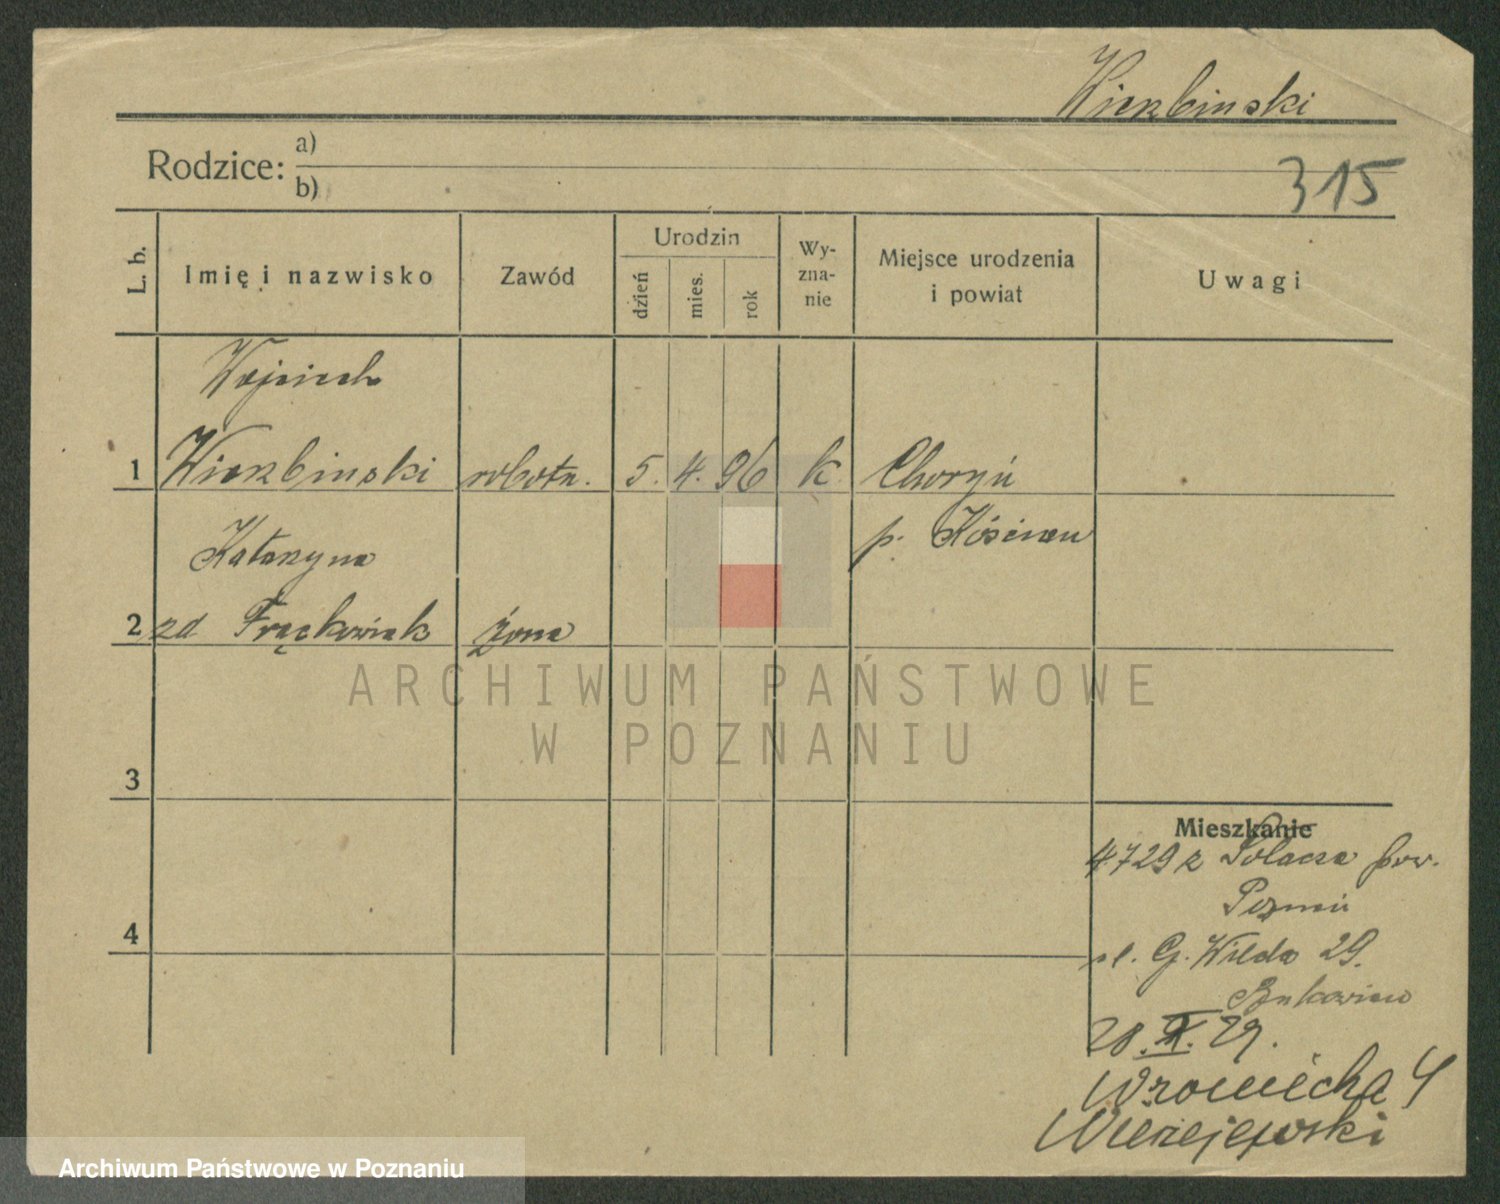 Wierzbinski
Rodzice: a)
b)
315
L. b.
Imię i nazwisko
Zawód
Urodzin
dzień
mies.
rok
Wy-
zna-
nie
Miejsce urodzenia
i powiat
Uwagi
Wojciech
1 Wierzbinski robotn. 5. 4. 96 k. Choryń
p. Kościan
Katarzyna
2 zd Frąckowiak żona
ARCHIWUM PAŃSTWOWE
W POZNANIU
3
Mieszkanie
4729 z Sołacza pow.
Poznań
4
ul. G. Wilda 29.
28. X. 29.
Wroniecka 4
Archiwum Państwowe w Poznaniu